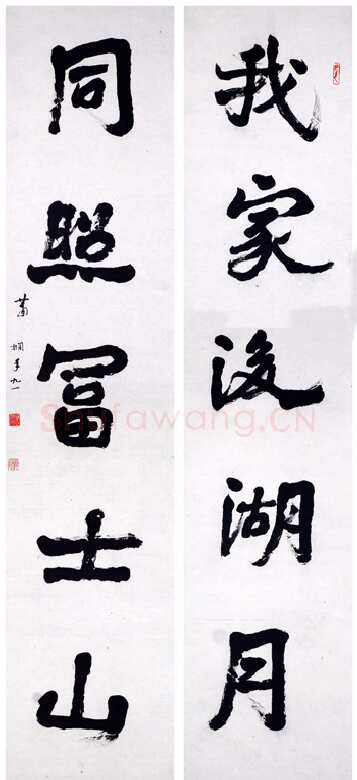 我家後湖月
同照冨士山
蕭嫻年九一
Shufawang.CN